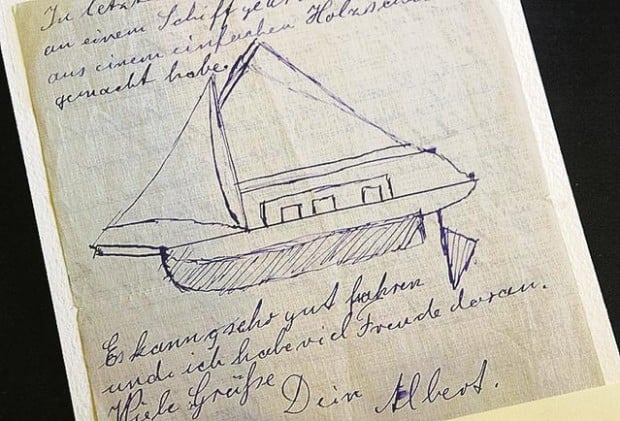 In
an einem Schiff
aus einem einfachen
gemacht habe.
Es kann sehr gut fahren
und ich habe viel Freude daran.
Viele Grüße
Dein Albert.